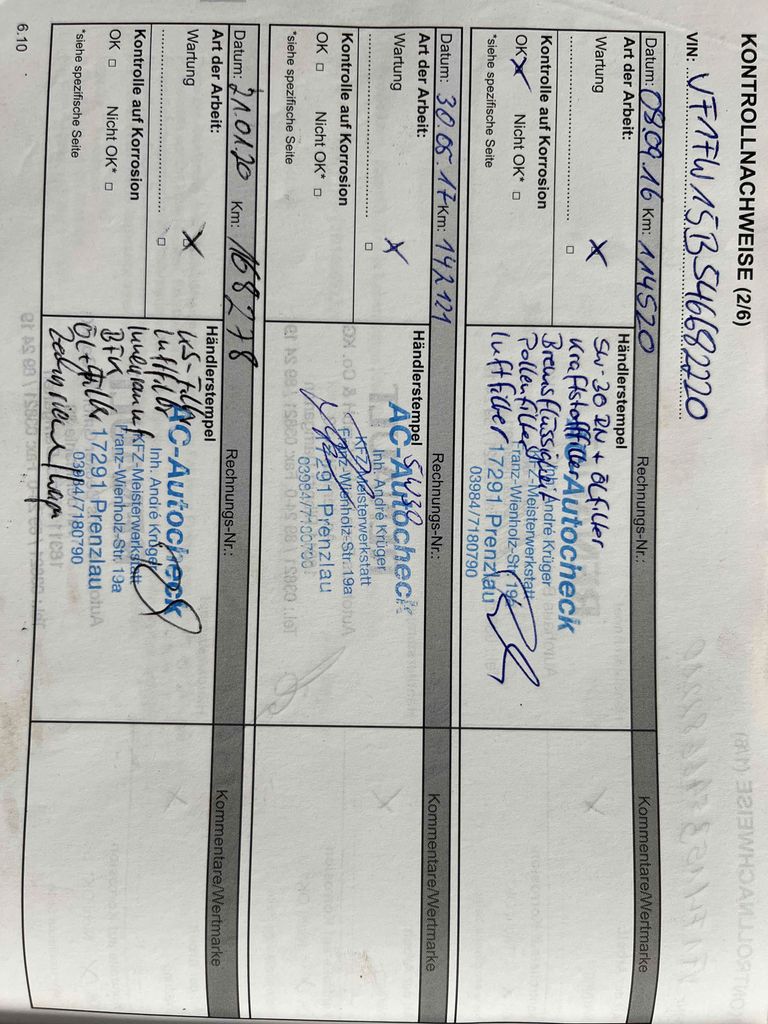 KONTROLLNACHWEISE (2/6)
VIN: VF1FW15B546682220
Datum: 09.09.16 Km: 114520 Rechnungs-Nr.: Kommentare/Wertmarke
Art der Arbeit:
Wartung
Kontrolle auf Korrosion
OK Nicht OK*
*siehe spezifische Seite
Händlerstempel
5W-30 RN + Ölfilter
Kraftstofffilter
Bremsflüssigkeit
Pollenfilter
Luftfilter
Autocheck
Inh. André Krüger
KFZ-Meisterwerkstatt
Franz-Wienholz-Str. 19a
17291 Prenzlau
03984/7180790
Datum: 30.05.17 Km: 142121 Rechnungs-Nr.: Kommentare/Wertmarke
Art der Arbeit:
Wartung
Kontrolle auf Korrosion
OK Nicht OK*
*siehe spezifische Seite
Händlerstempel 5W30
AC-Autocheck
Inh. André Krüger
KFZ-Meisterwerkstatt
Franz-Wienholz-Str. 19a
17291 Prenzlau
03984/7180790
Datum: 21.01.20 Km: 168278 Rechnungs-Nr.: Kommentare/Wertmarke
Art der Arbeit:
Wartung
Kontrolle auf Korrosion
OK Nicht OK*
*siehe spezifische Seite
Händlerstempel
KS-Filter
Luftfilter
Innenraumf
BFK
Öl + Filter
AC-Autocheck
Inh. André Krüger
KFZ-Meisterwerkstatt
Franz-Wienholz-Str. 19a
17291 Prenzlau
03984/7180790
6.10